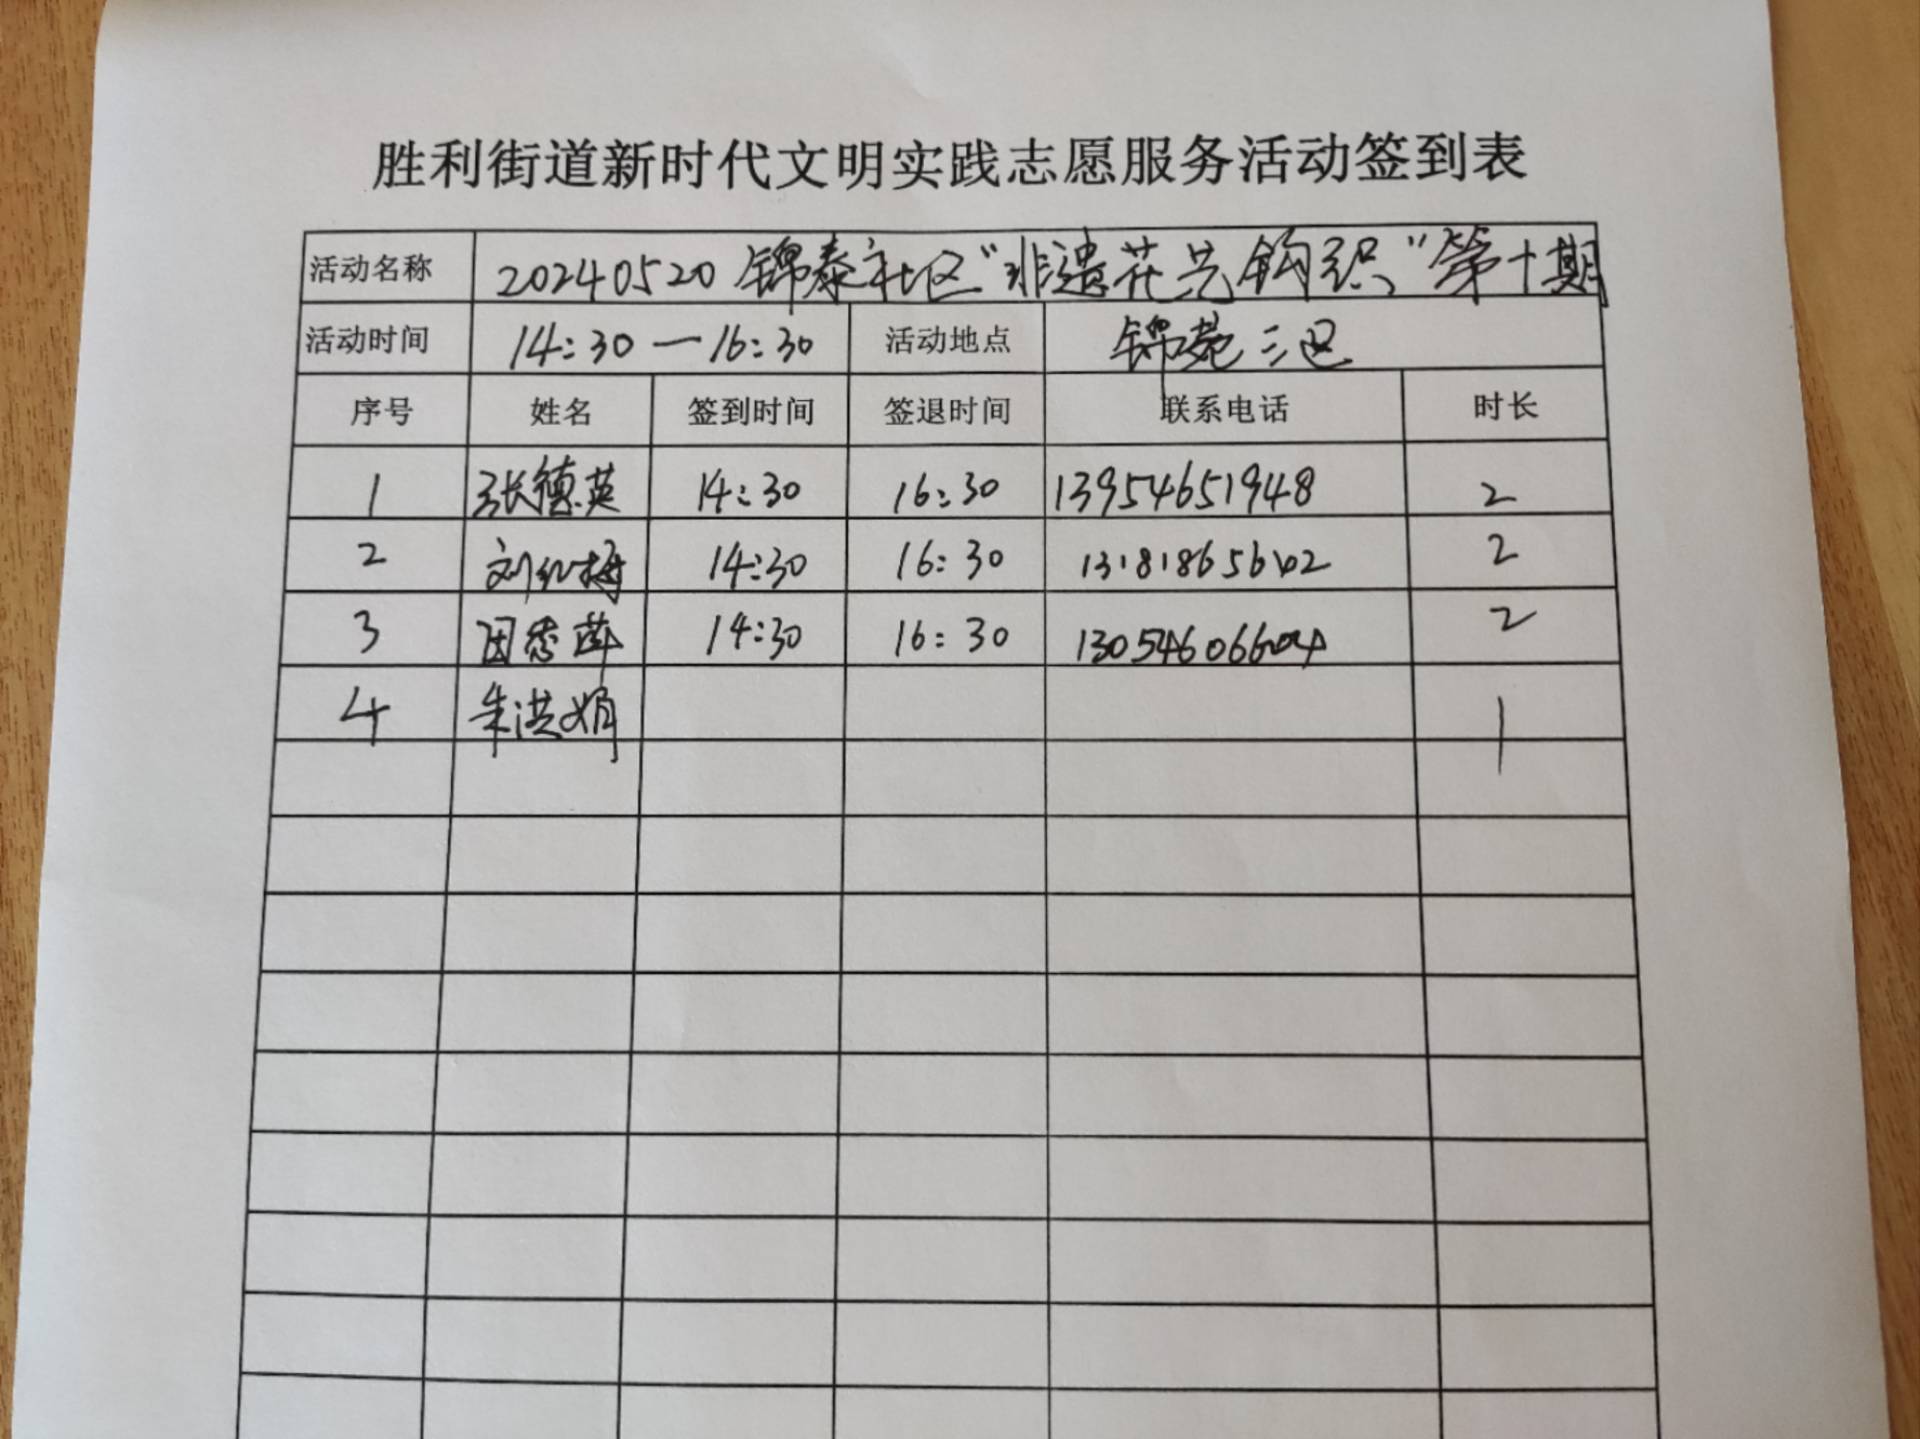 胜利街道新时代文明实践志愿服务活动签到表
活动名称 20240520 锦泰社区"非遗花艺钩织"第十期
活动时间 14:30—16:30 活动地点 锦苑三区
序号 姓名 签到时间 签退时间 联系电话 时长
1 张德英 14:30 16:30 13954651948 2
2 刘红梅 14:30 16:30 2
3 14:30 16:30 13054606604 2
4 朱洪娟 1